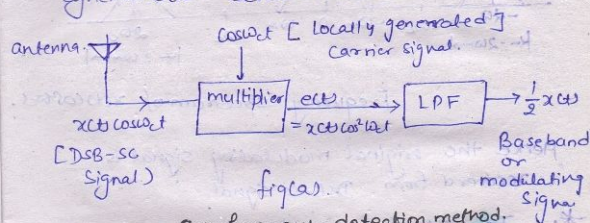 cosωct [ locally generated ]
carrier signal.
antenna.
multiplier
e(t)
= x(t)cos²ωct
LPF
1/2 x(t)
x(t)cosωct
[DSB-SC
Signal)
Baseband
or
modulating
Signal
fig(a).
detection method.